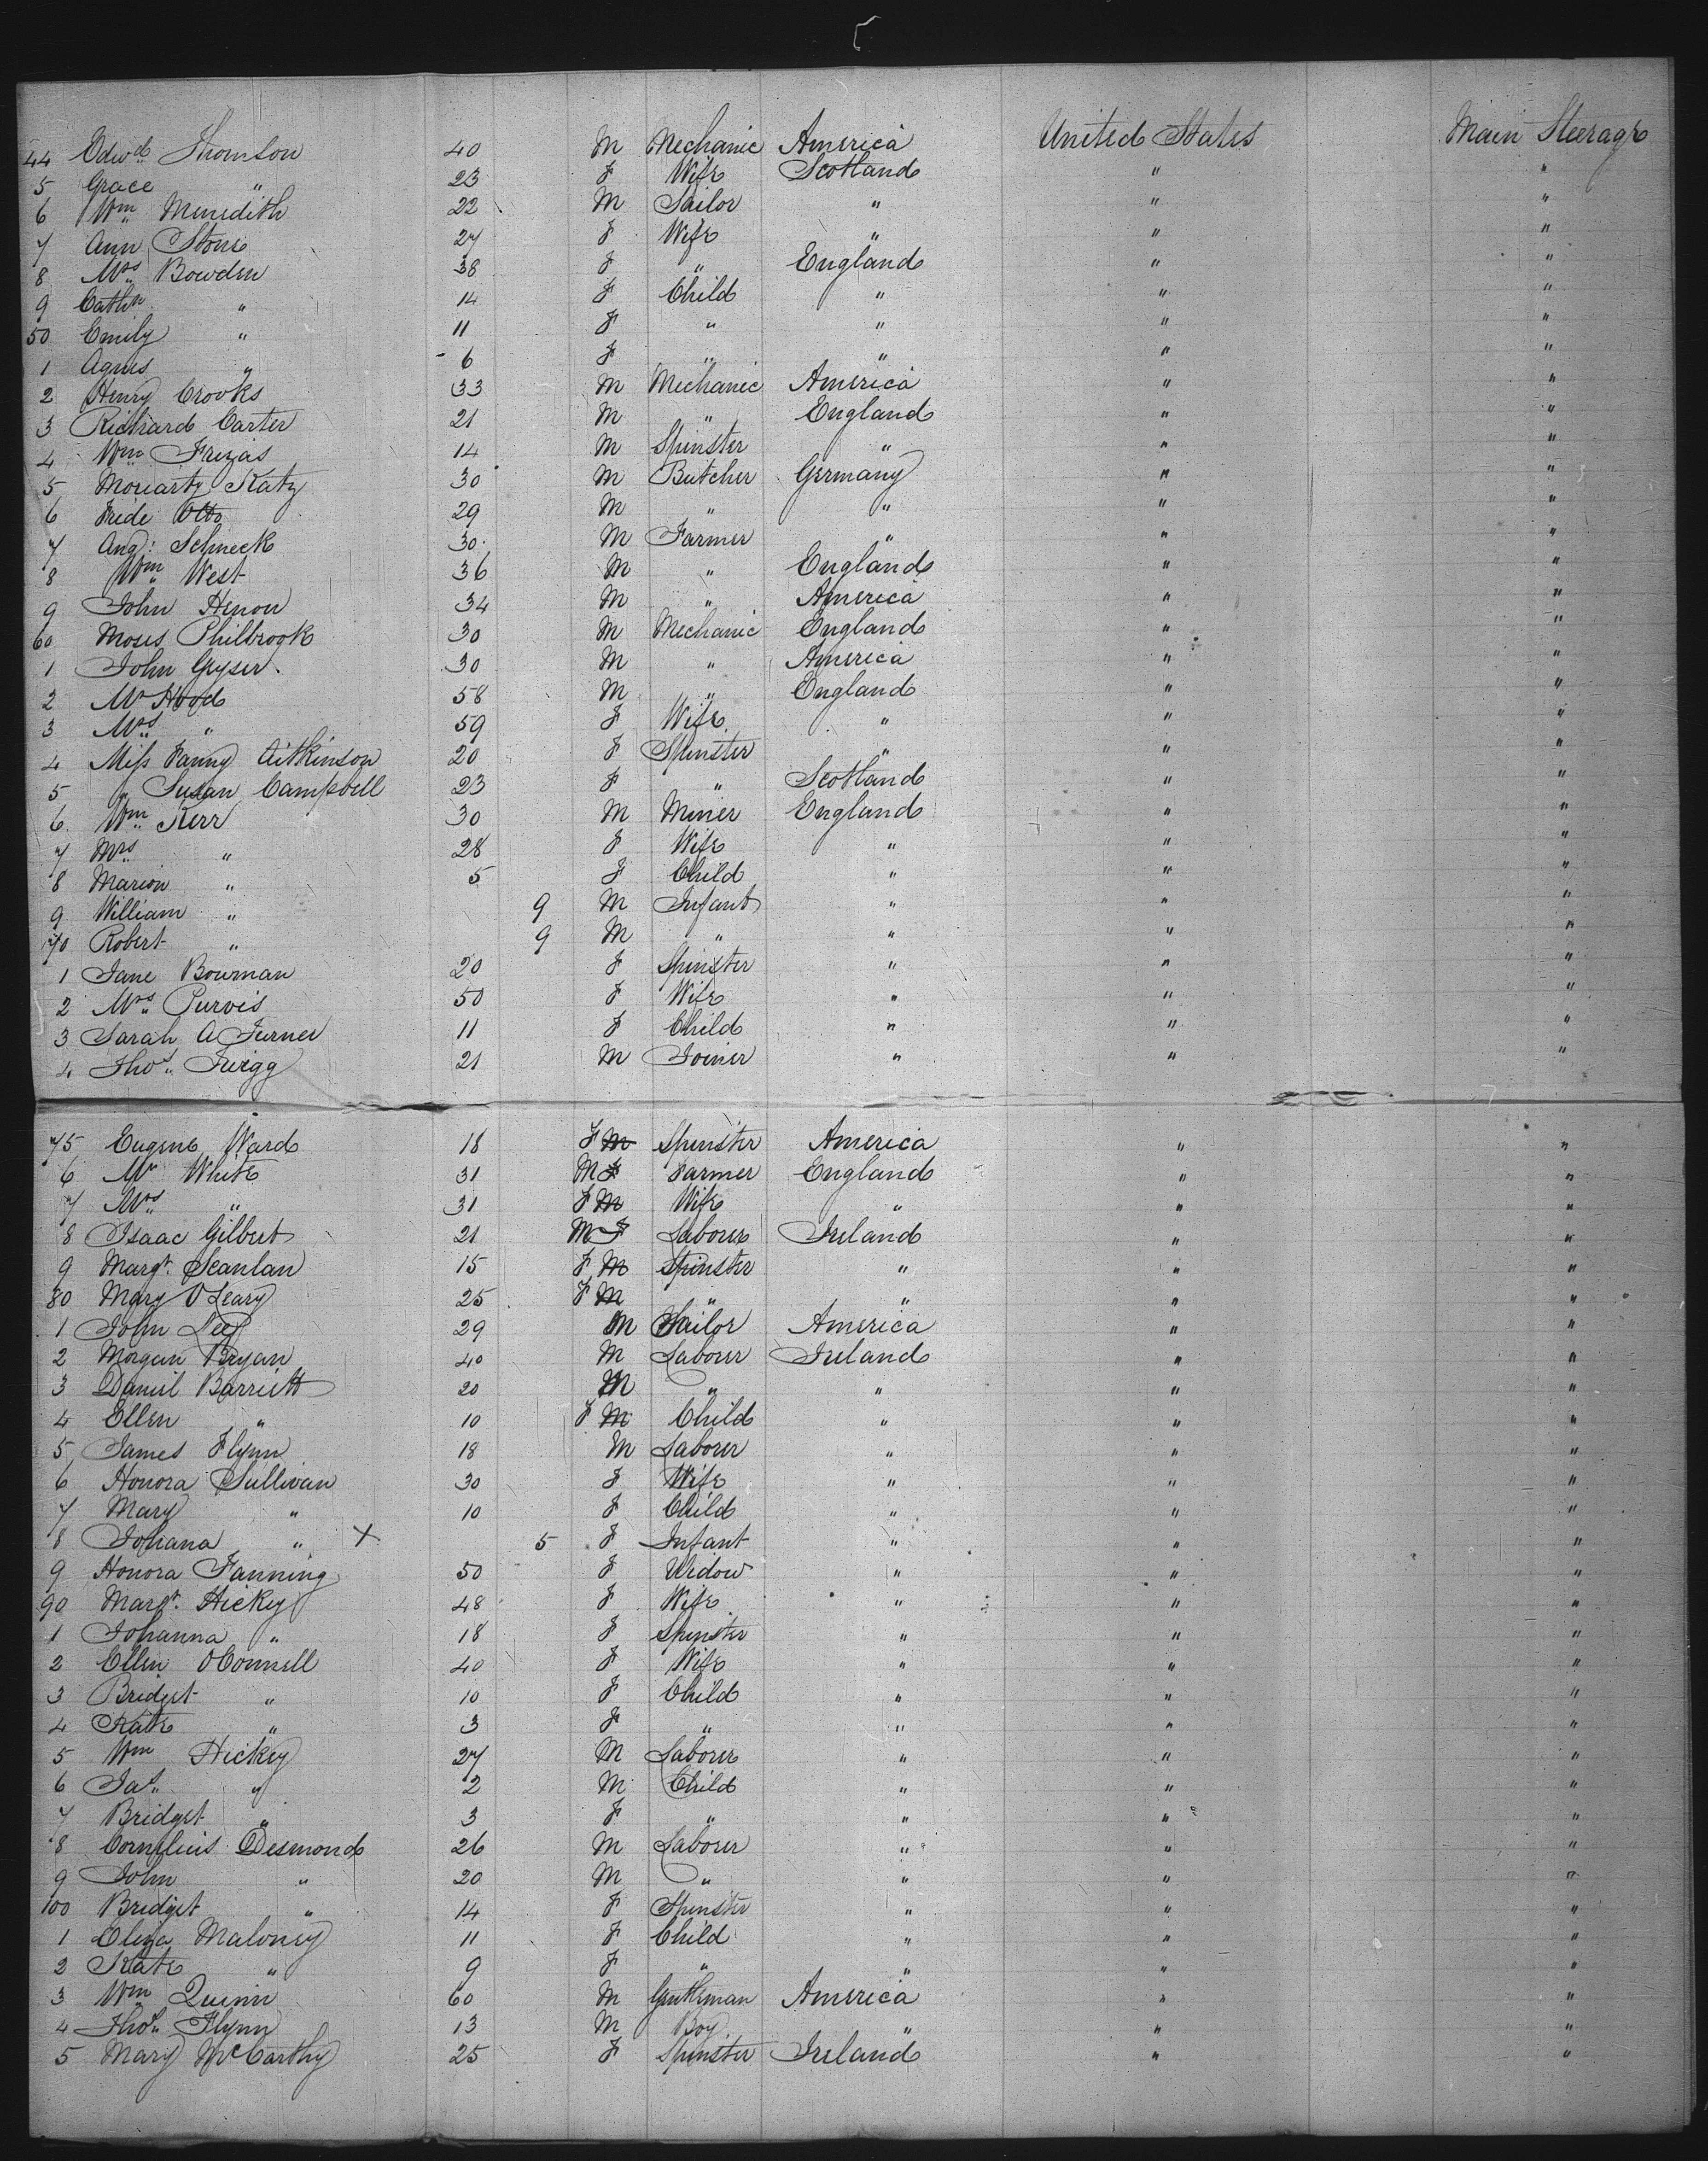 44 Edwd Thomson 40 M Mechanic America United States Main Steerage
5 Grace " 23 F Wife Scotland " "
6 Wm Meredith 22 M Sailor " " "
7 Ann Stone 27 F Wife " " "
8 Mrs Bowden 38 F " England " "
9 Cathn " 14 F Child " " "
50 Emily " 11 F " " " "
1 Agnes " 6 F " " " "
2 Henry Crooks 33 M Mechanic America " "
3 Richard Carter 21 M " England " "
4 Wm 14 M Spinster " " "
5 Moriarty Katz 30 M Butcher Germany " "
6 Fride Otto 29 M " " " "
7 Aug: Schneck 30 M Farmer " " "
8 Wm West 36 M " England " "
9 John Henon 34 M " America " "
60 Moses Philbrook 30 M Mechanic England " "
1 John Geyser 30 M " America " "
2 Mr Hood 58 M " England " "
3 Mrs " 59 F Wife " " "
4 Miss Fanny Aitkinson 20 F Spinster " " "
5 " Susan Campbell 23 F " Scotland " "
6 Wm Kerr 30 M Miner England " "
7 Mrs " 28 F Wife " " "
8 Marion " 5 F Child " " "
9 William " 9 M Infant " " "
70 Robert " 9 M " " " "
1 Jane Bowman 20 F Spinster " " "
2 Mrs Purvis 50 F Wife " " "
3 Sarah A Turner 11 F Child " " "
4 Thos Twigg 21 M Joiner " " "
75 Eugene Ward 18 F M Spinster America " "
6 Mr White 31 M F Farmer England " "
7 Mrs " 31 F M Wife " " "
8 Isaac Gilbert 21 M F Laborer Ireland " "
9 Margt Scanlan 15 F M Spinster " " "
80 Mary O'Leary 25 F M " " " "
1 John Lee 29 M Sailor America " "
2 Morgan Bryan 40 M Laborer Ireland " "
3 Daniel Barrett 20 M " " " "
4 Ellen " 10 F M Child " " "
5 James Flynn 18 M Laborer " " "
6 Honora Sullivan 30 F Wife " " "
7 Mary " 10 F Child " " "
8 Johana " X 5 F Infant " " "
9 Honora Fanning 50 F Widow " " "
90 Margt Hickey 48 F Wife " " "
1 Johanna " 18 F Spinster " " "
2 Ellen OConnell 40 F Wife " " "
3 Bridget " 10 F Child " " "
4 Kate " 3 F " " " "
5 Wm Hickey 27 M Laborer " " "
6 Jas " 2 M Child " " "
7 Bridget " 3 F " " " "
8 Cornelius Desmond 26 M Laborer " " "
9 John " 20 M " " " "
100 Bridget " 14 F Spinster " " "
1 Eliza Maloney 11 F Child " " "
2 Kate " 9 F " " " "
3 Wm Quinn 60 M Gentleman America " "
4 Thos Flynn 13 M Boy " " "
5 Mary McCarthy 25 F Spinster Ireland " "